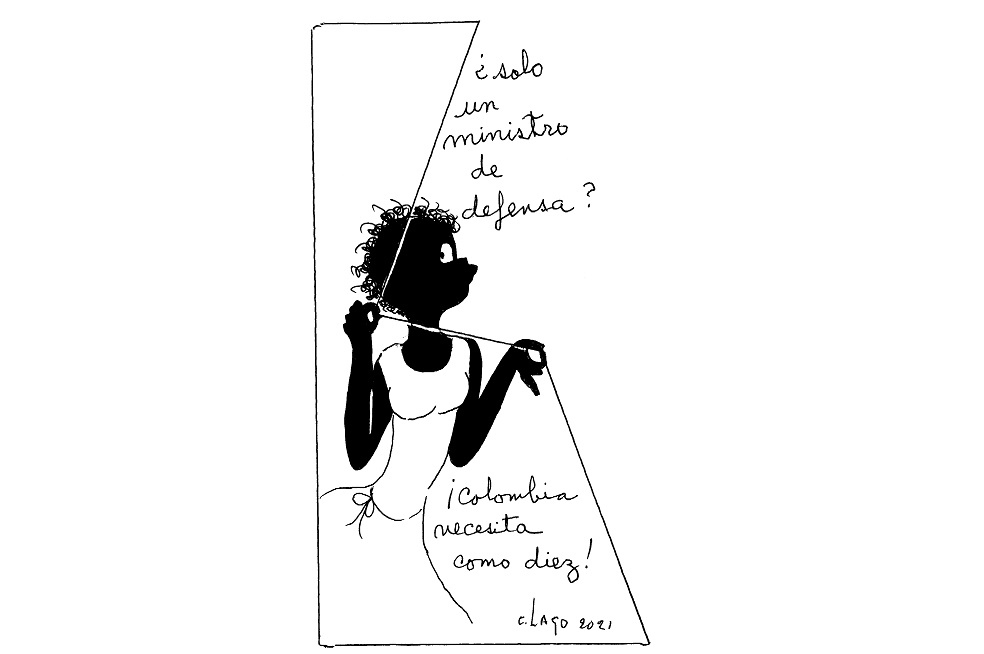 ¿solo
un
ministro
de
defensa?
¡Colombia
necesita
como diez!
C. Lago 2021